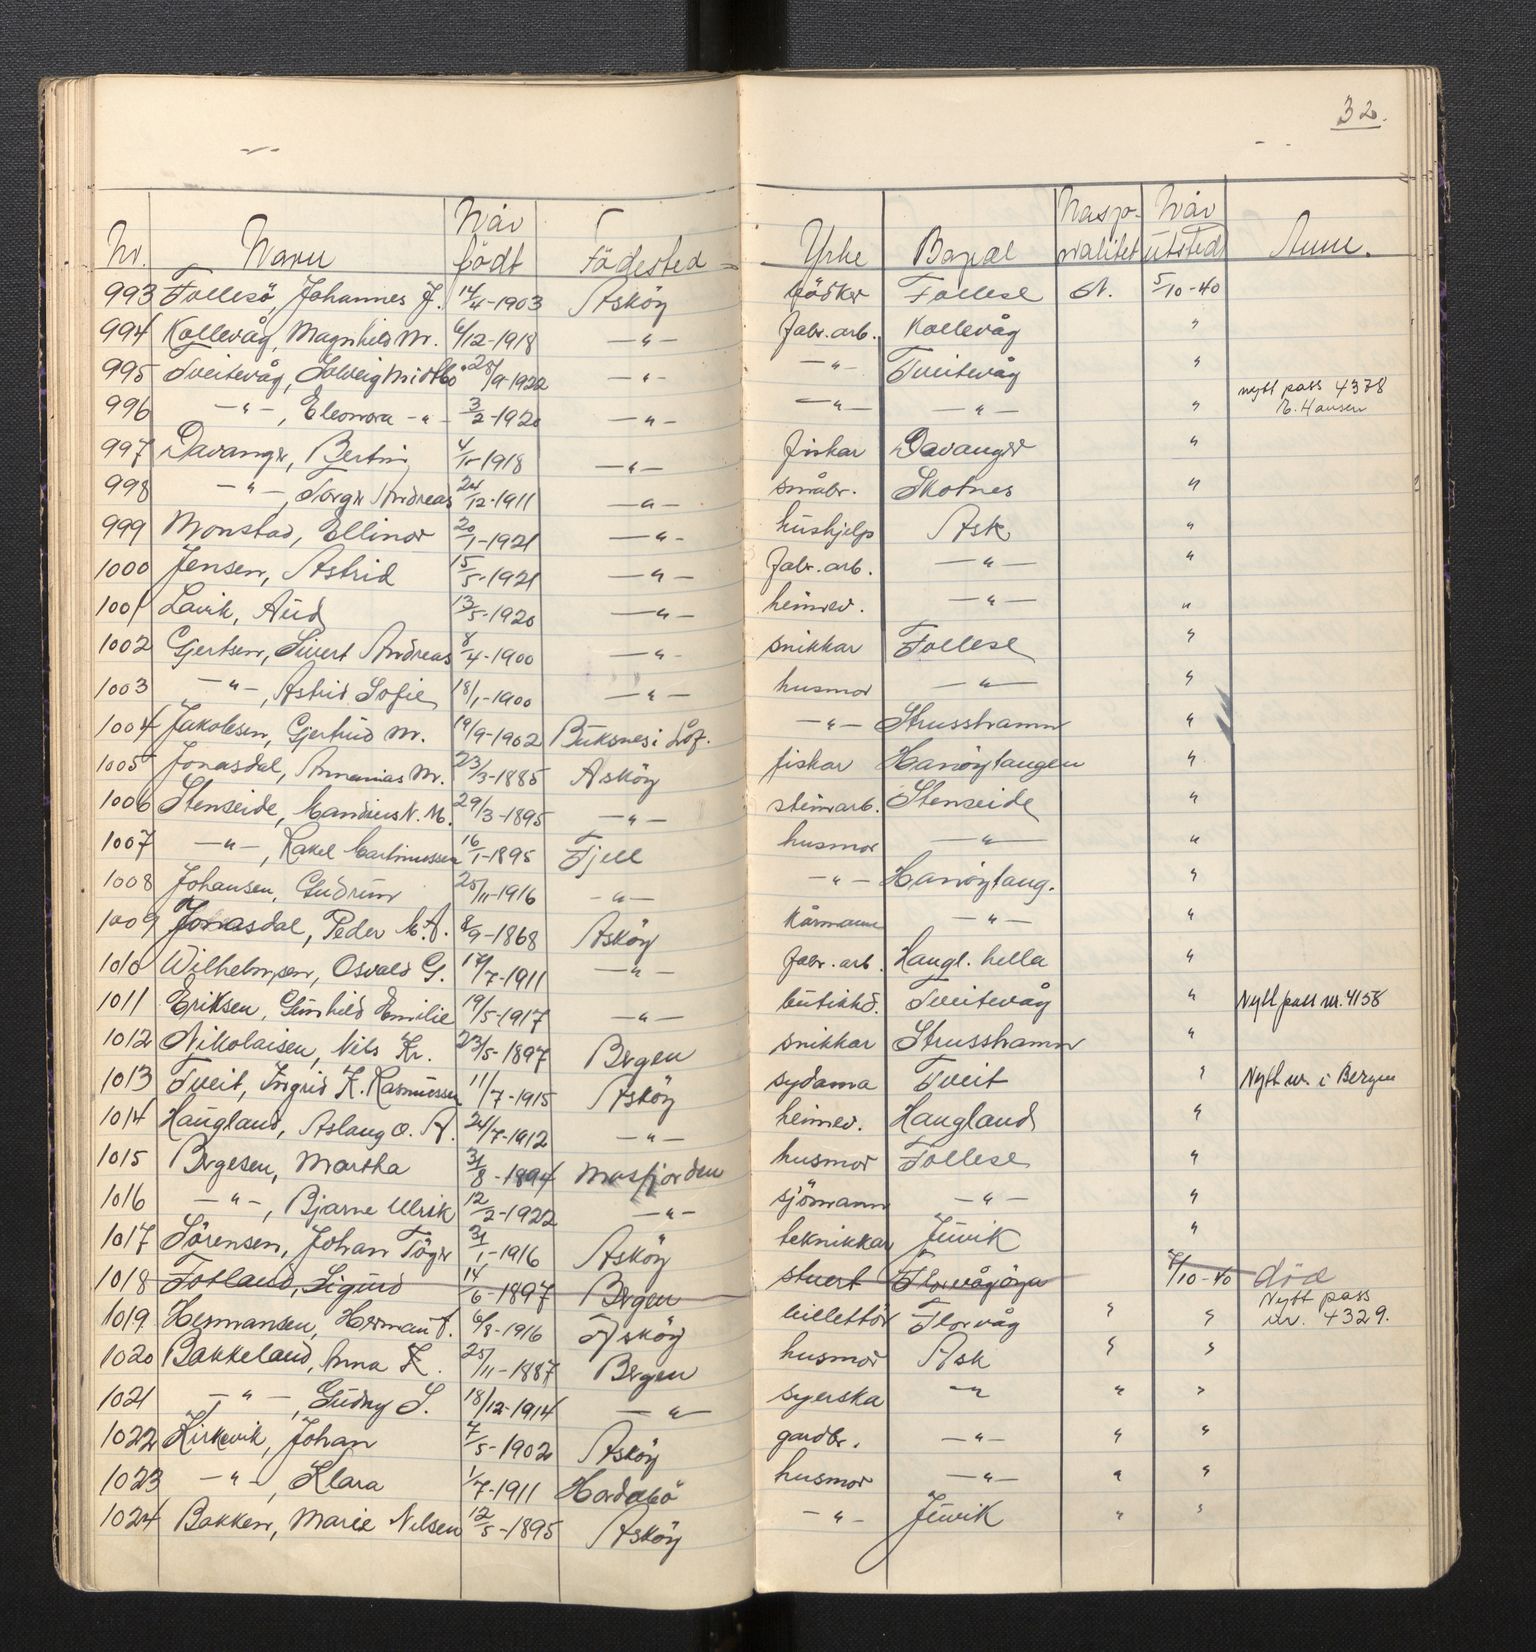 32.
Nr. Navn Når födt Födested Yrke Bopæl Nasjonalitet Når utstedt Anm.
993 Follesö, Johannes J. 14/4-1903 Asköy bödker Follese N. 5/10-40
994 Kollevåg, Magnhild M. 6/12-1918 —"— fabr.arb. Kollevåg "
995 Tveitevåg, Solveig Midtbö 28/9-1922 —"— —"— Tveitevåg "
996 —"—, Eleonora —"— 3/2-1920 —"— —"— —"— " nytt pass 4378 E. Hansen
997 Davanger, Bertin 4/11-1918 —"— fiskar Davanger "
998 —"—, Torger Andreas 24/12-1911 —"— småbr. Skotnes "
999 Monstad, Ellinor 20/1-1921 —"— hushjelp Ask "
1000 Jensen, Astrid 15/5-1921 —"— fabr.arb. —"— "
1001 Lavik, Aud 13/5-1920 —"— heimev. —"— "
1002 Gjertsen, Sivert Andreas 8/4-1900 —"— snikkar Follese "
1003 —"—, Astrid Sofie 18/1-1900 —"— husmor —"— "
1004 Jakobsen, Gjertrud M. 19/9-1902 Buksnes i Lof. —"— Strusshamn "
1005 Jonasdal, Annanias M. 23/3-1885 Asköy fiskar Hanöytangen "
1006 Stenseide, Mandius N. M. 29/3-1895 —"— steinarb. Stenseide "
1007 —"—, Rakel Martinussen 16/1-1895 Fjell husmor —"— "
1008 Johansen, Gudrun 25/11-1916 —"— —"— Hanöytang. "
1009 Jonasdal, Peder M. A. 8/9-1868 Asköy kårmann —"— "
1010 Wilhelmsen, Osvald G. 17/7-1911 —"— fabr.arb. Haugl. hella "
1011 Eriksen, Gunhild Emilie 19/5-1917 —"— butikkd. Tveitevåg " Nytt pass nr. 4158
1012 Nikolaisen, Nils Kr. 23/5-1897 Bergen snikkar Strusshamn "
1013 Tveit, Ingrid K. Rasmussen 11/7-1915 Asköy sydama Tveit " Nytt nr. i Bergen
1014 Haugland, Aslaug O. A. 24/7-1912 —"— heimev. Haugland "
1015 Bergesen, Martha 31/8-1894 Masfjorden husmor Follese "
1016 —"—, Bjarne Ulrik 12/2-1922 —"— sjömann —"— "
1017 Sörensen, Johan Töger 31/1-1916 Asköy teknikkar Juvik "
1018 Fotland, Sigurd 14/6-1897 Bergen stuert Florvågöyn 7/10-40 död
1019 Hermansen, Herman F. 6/8-1916 Asköy billettör Florvåg " " Nytt pass nr. 4329.
1020 Bakkeland, Anna K. 25/11-1887 Bergen husmor Ask " "
1021 —"—, Gudny S. 18/12-1914 —"— syerska —"— " "
1022 Kirkevik, Johan 7/5-1902 Asköy gardbr. —"— " "
1023 —"—, Klara 1/7-1911 Hordabö husmor —"— " "
1024 Bakken, Marie Nilsen 12/5-1895 Asköy —"— Juvik " "